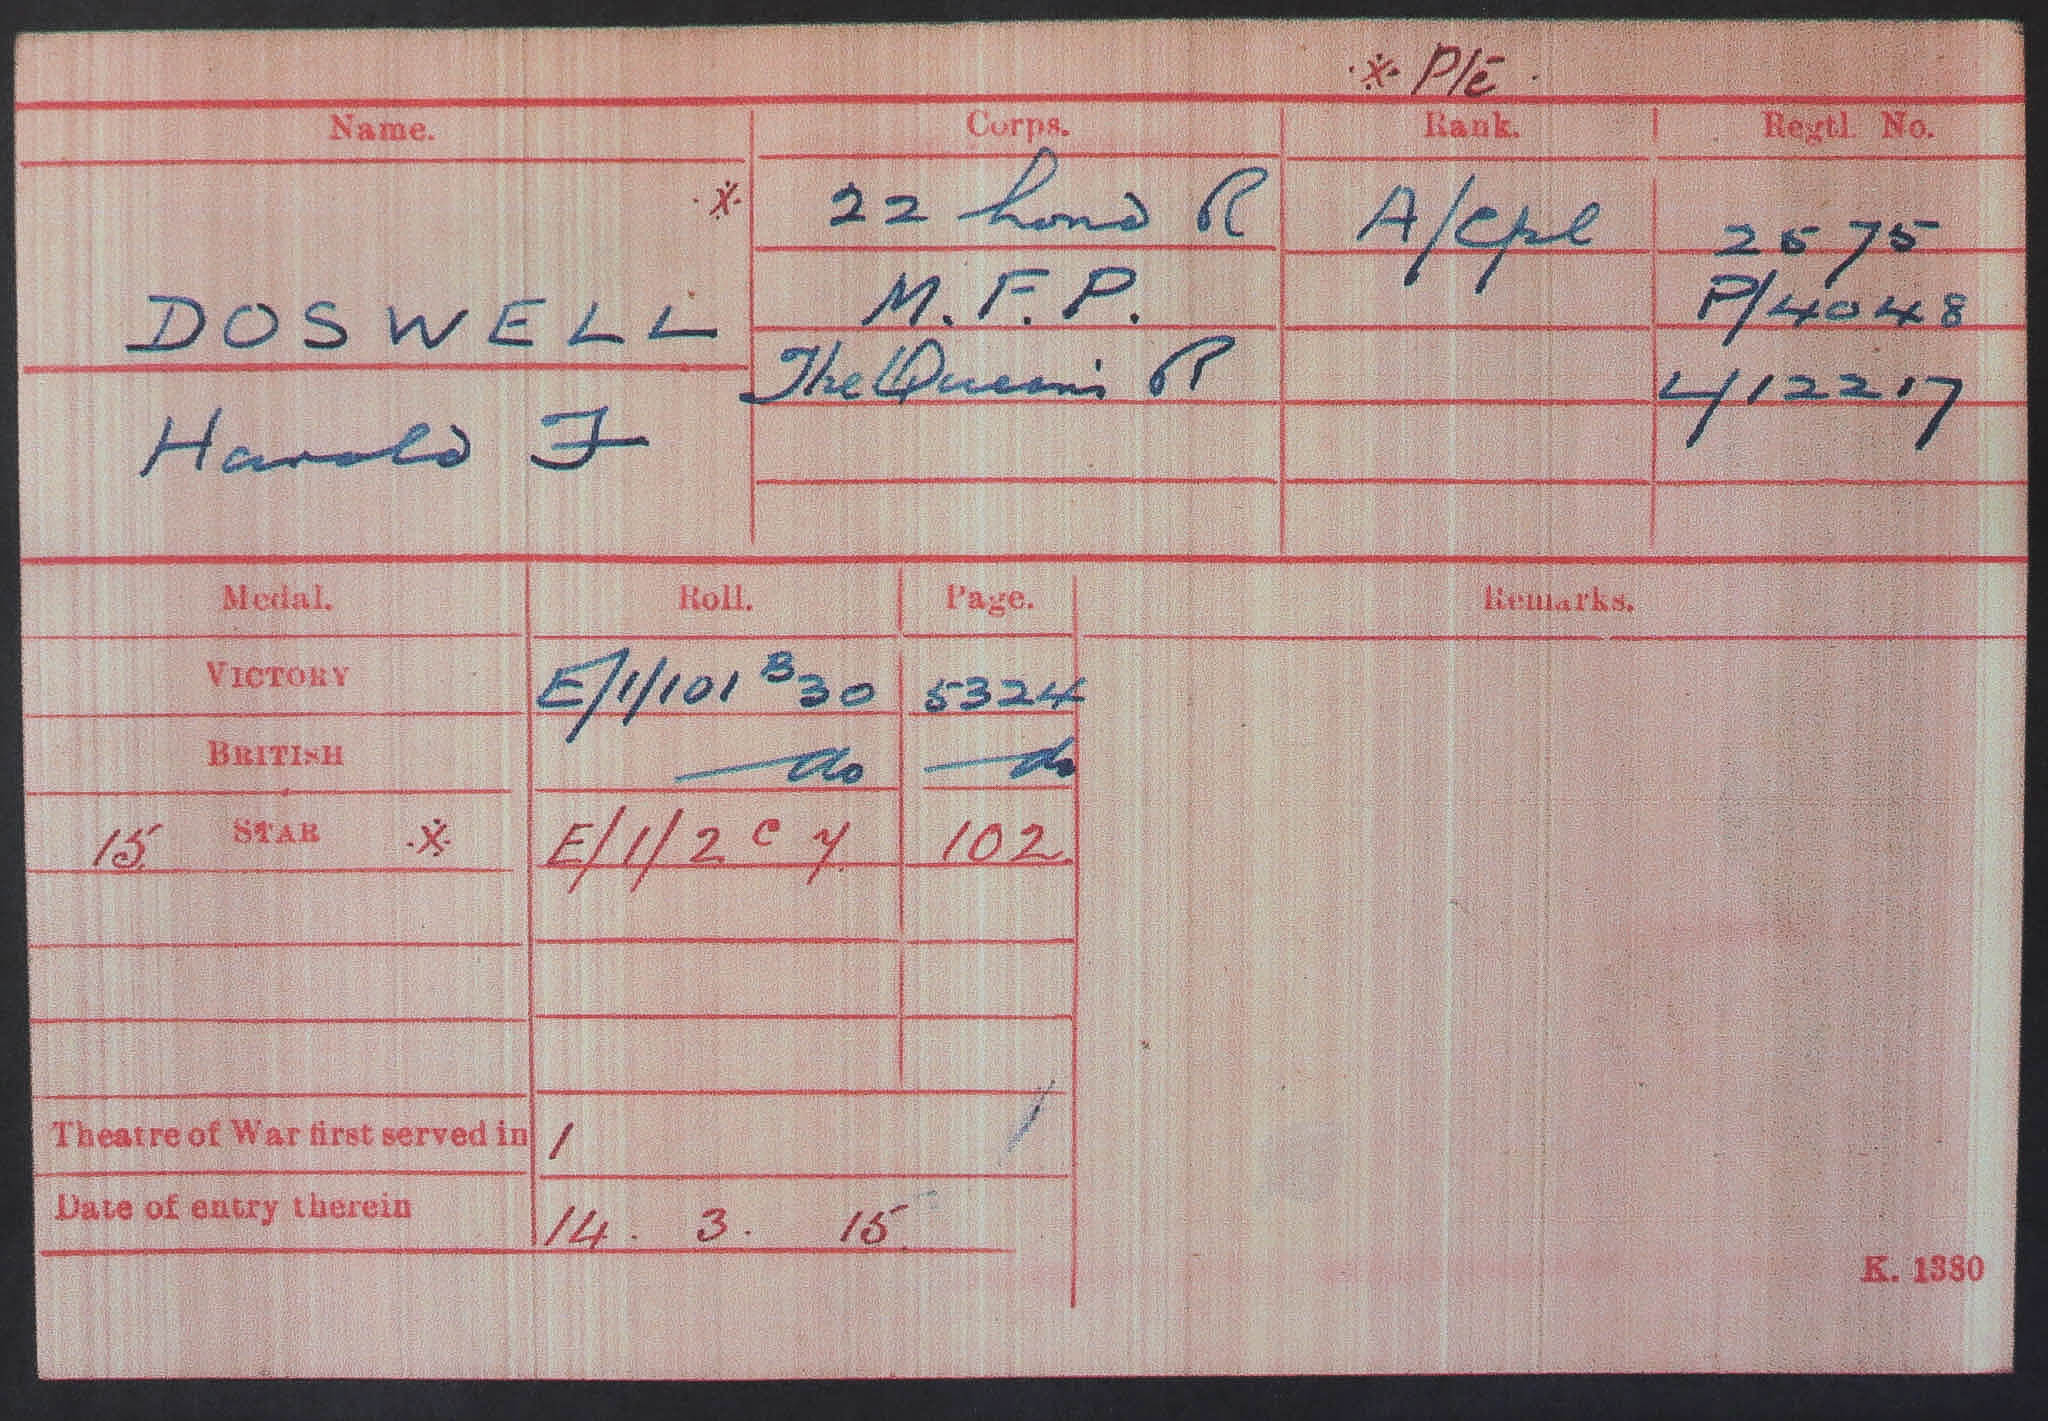 ※ P/E.
Name. Corps. Rank. Regtl. No.
※ 22 Lond R A/Cpl 2575
DOSWELL M.F.P. P/4048
Harold F The Queen's R L/12217
Medal. Roll. Page. Remarks.
VICTORY E/1/101 B 30 5324
BRITISH — do — do
15 STAR ※ E/1/2 C 7 102
Theatre of War first served in 1
Date of entry therein 14. 3. 15.
K. 1380